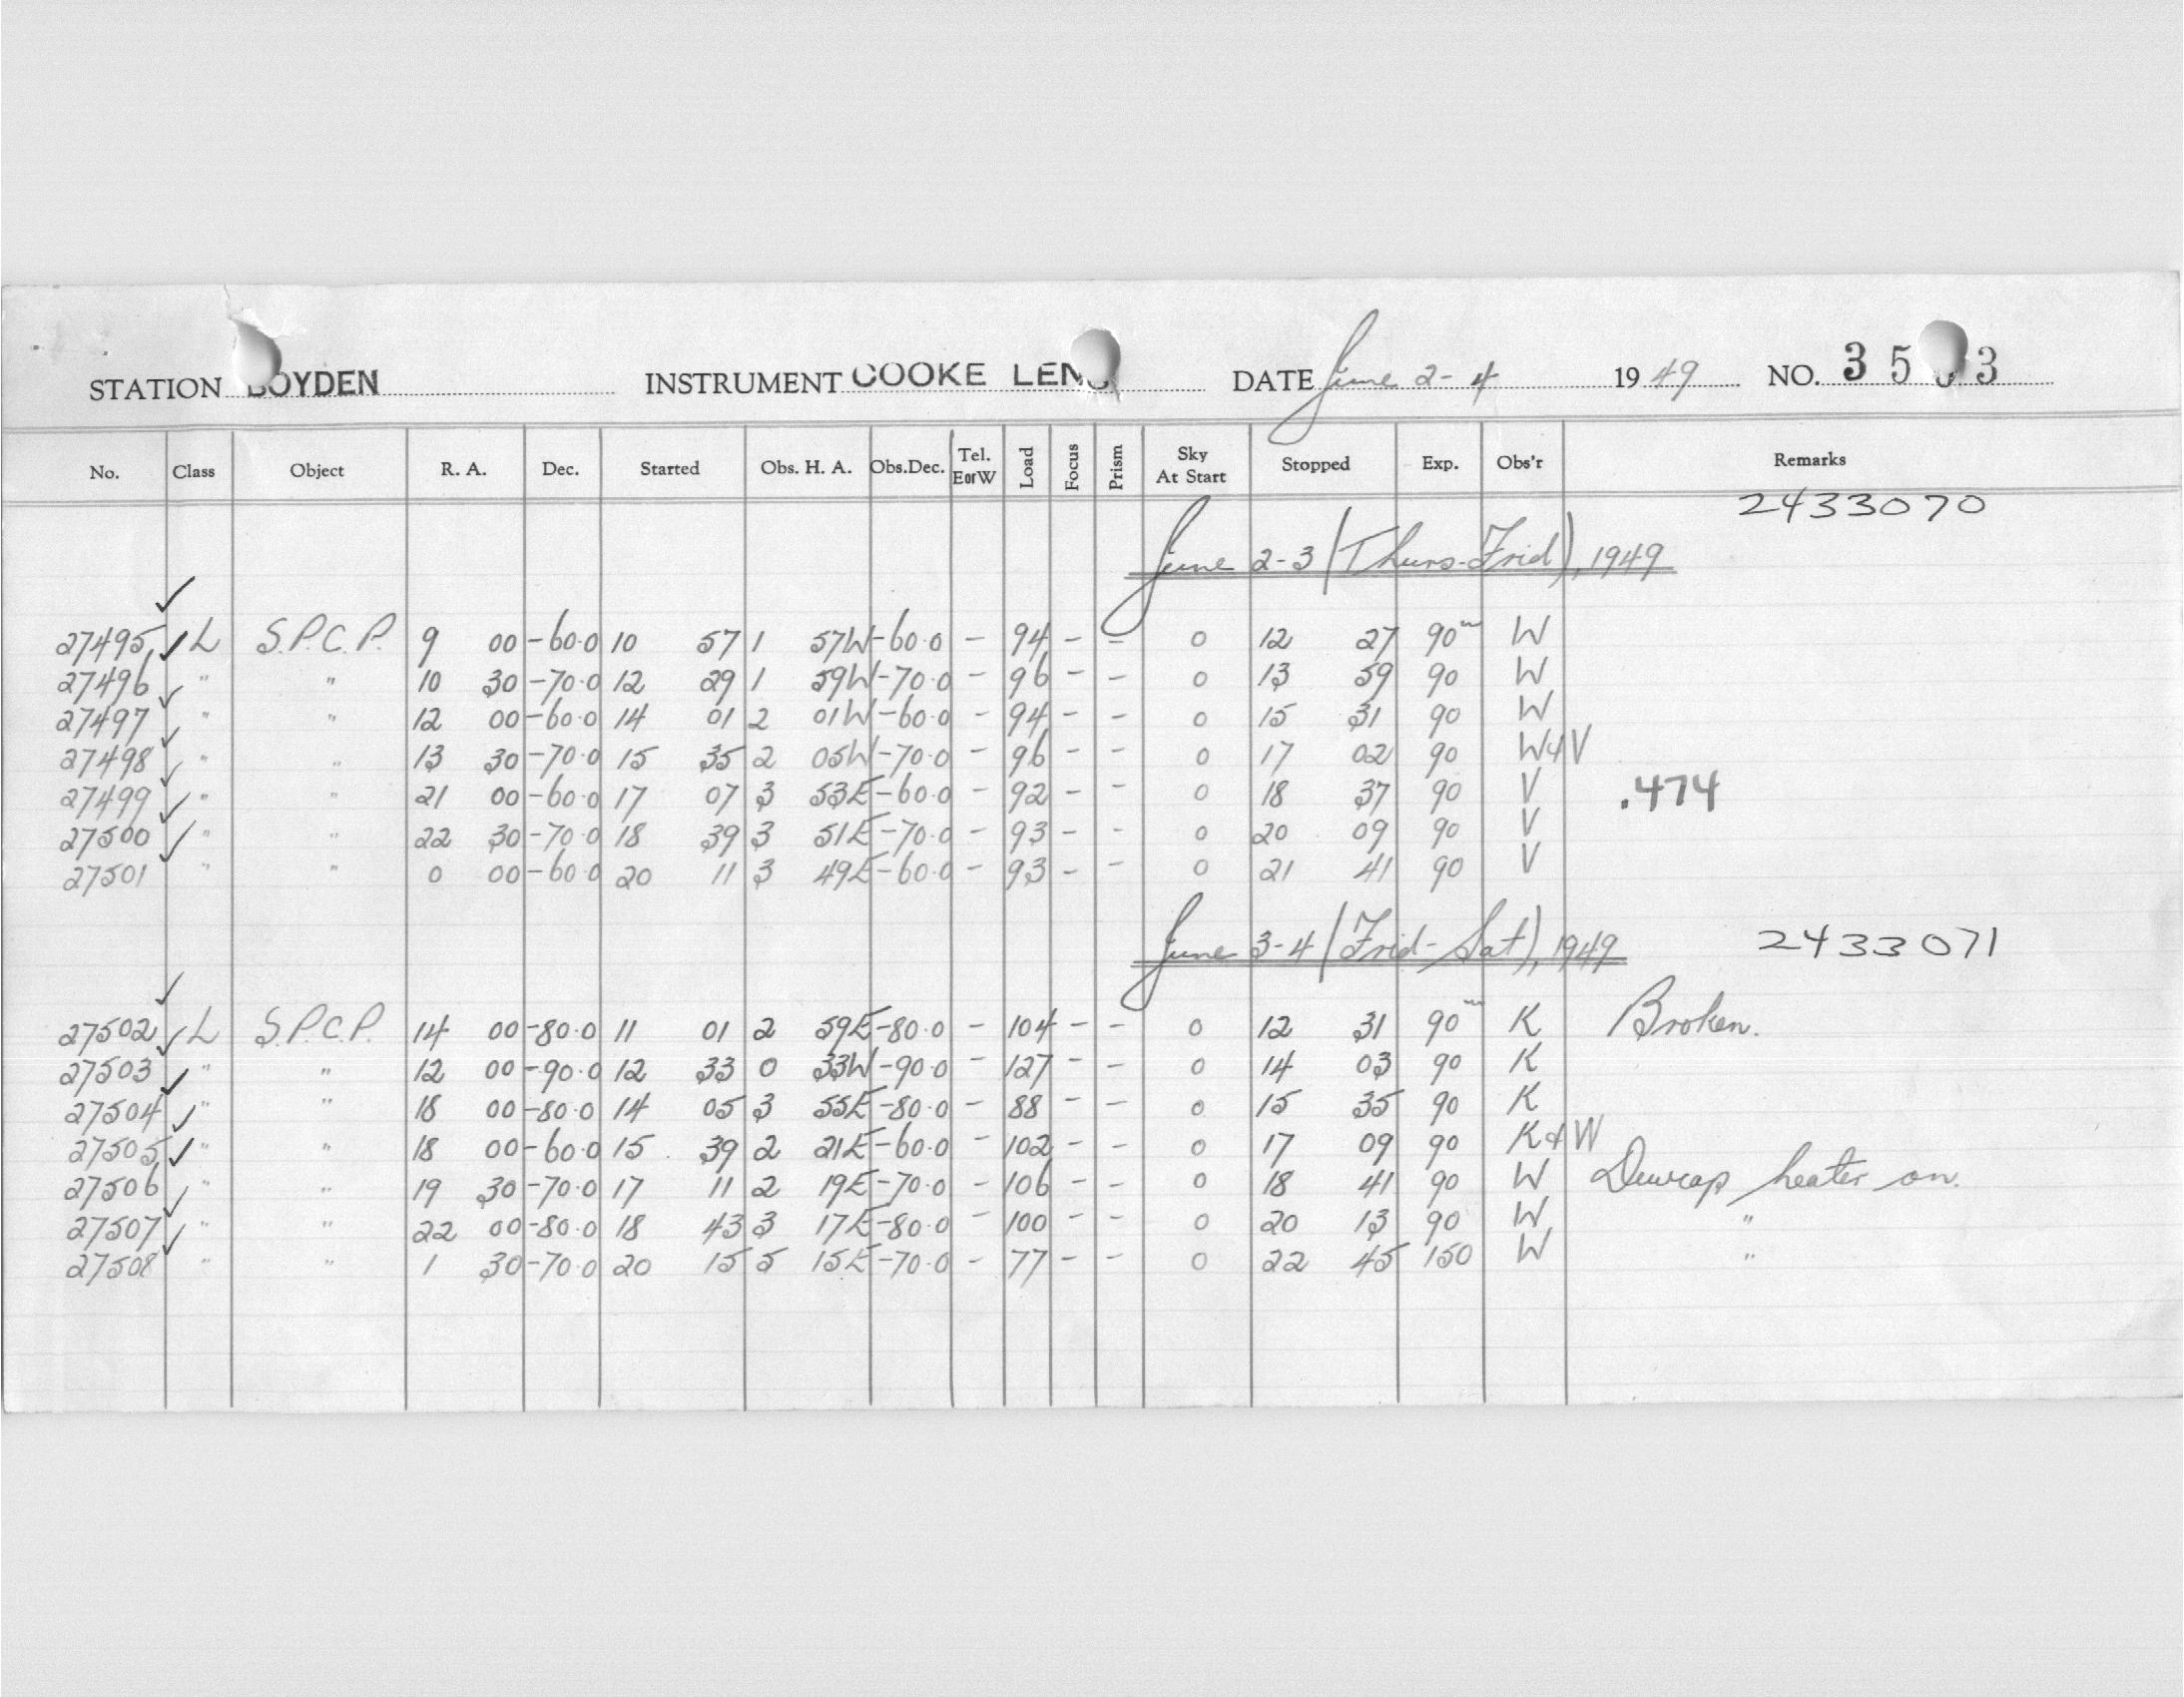 STATION BOYDEN INSTRUMENT COOKE LENS DATE June 2-4 1949 NO. 35 3
No. Class Object R. A. Dec. Started Obs. H. A. Obs.Dec. Tel. EorW Load Focus Prism Sky At Start Stopped Exp. Obs'r Remarks
2433070
June 2-3 (Thurs-Frid), 1949
✓
27495 ✓ L S.P.C.P. 9 00 -60.0 10 57 1 57W -60.0 - 94 - - 0 12 27 90m W
27496 ✓ " " 10 30 -70.0 12 29 1 59W -70.0 - 96 - - 0 13 59 90 W
27497 ✓ " " 12 00 -60.0 14 01 2 01W -60.0 - 94 - - 0 15 31 90 W
27498 ✓ " " 13 30 -70.0 15 35 2 05W -70.0 - 96 - - 0 17 02 90 W&V
27499 ✓ " " 21 00 -60.0 17 07 3 53E -60.0 - 92 - - 0 18 37 90 V .474
27500 ✓ " " 22 30 -70.0 18 39 3 51E -70.0 - 93 - - 0 20 09 90 V
27501 " " 0 00 -60.0 20 11 3 49E -60.0 - 93 - - 0 21 41 90 V
June 3-4 (Frid-Sat), 1949 2433071
✓
27502 ✓ L S.P.C.P. 14 00 -80.0 11 01 2 59E -80.0 - 104 - - 0 12 31 90m K Broken.
27503 ✓ " " 12 00 -90.0 12 33 0 33W -90.0 - 127 - - 0 14 03 90 K
27504 ✓ " " 18 00 -80.0 14 05 3 55E -80.0 - 88 - - 0 15 35 90 K
27505 ✓ " " 18 00 -60.0 15 39 2 21E -60.0 - 102 - - 0 17 09 90 K&W
27506 ✓ " " 19 30 -70.0 17 11 2 19E -70.0 - 106 - - 0 18 41 90 W Dewcap heater on.
27507 ✓ " " 22 00 -80.0 18 43 3 17E -80.0 - 100 - - 0 20 13 90 W "
27508 " " 1 30 -70.0 20 15 5 15E -70.0 - 77 - - 0 22 45 150 W "